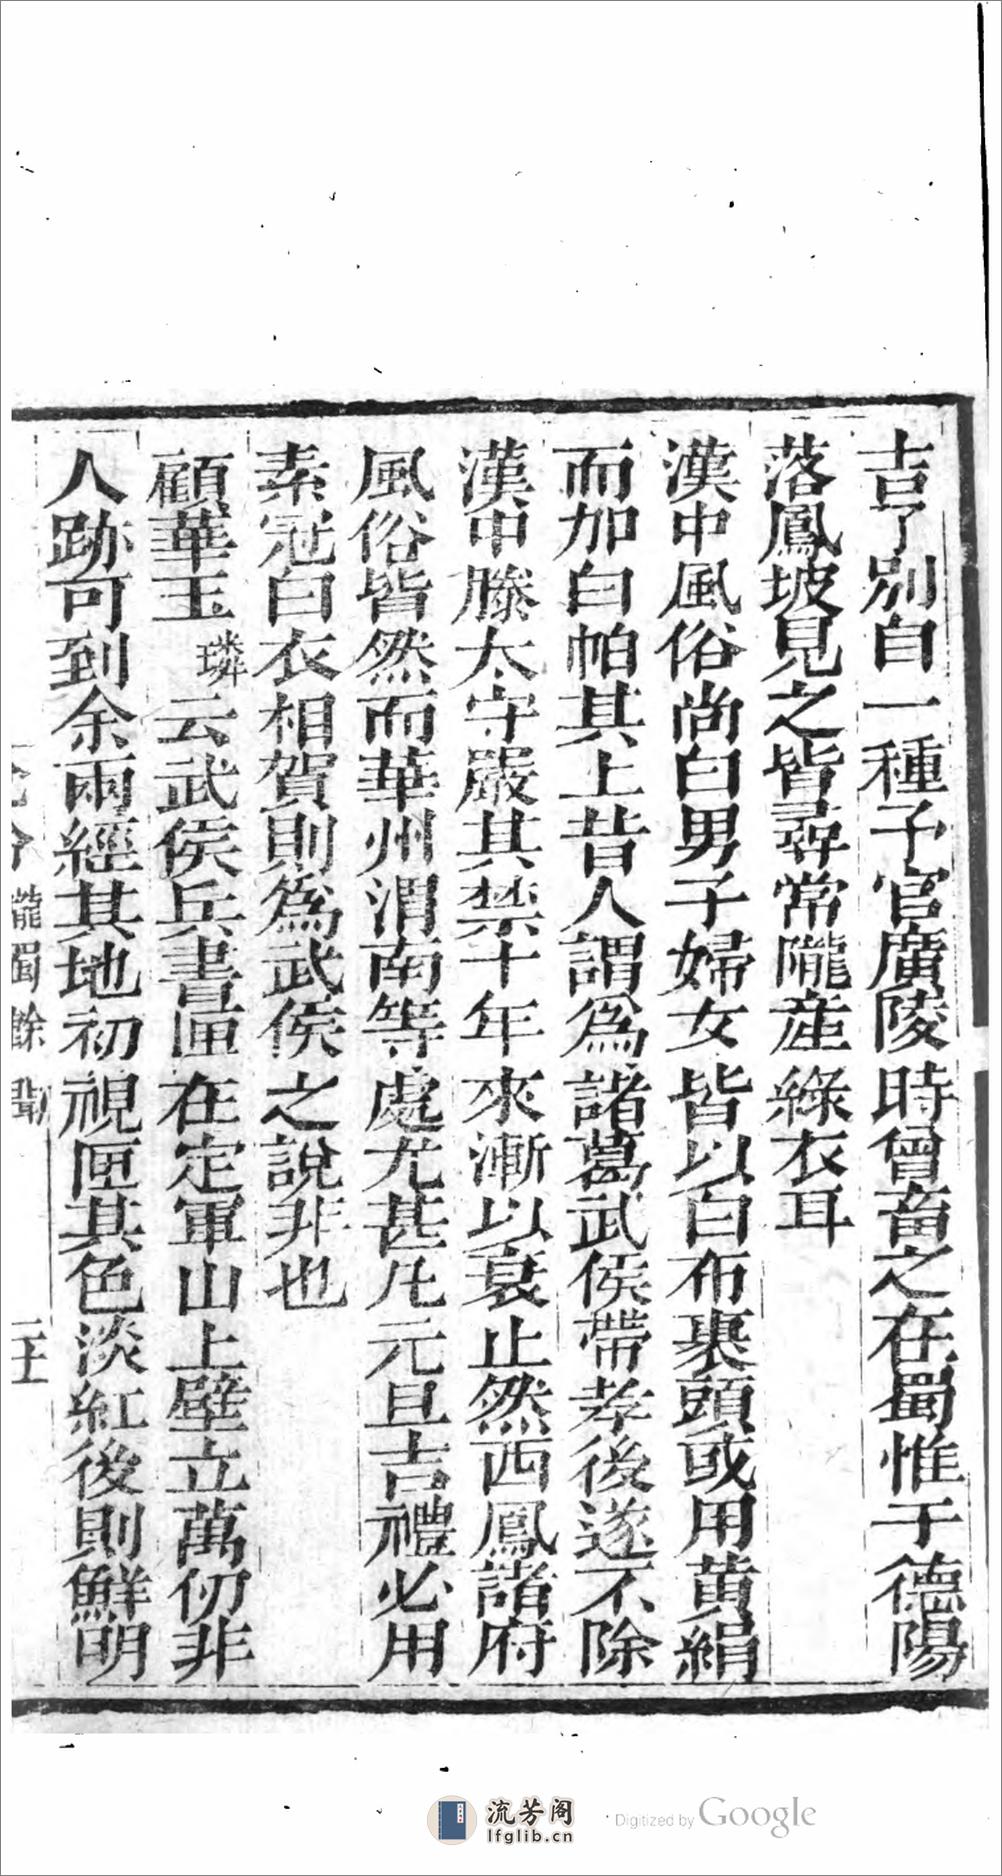 吉了別自一種予官廣陵時曾畜之在蜀惟于德陽
落鳳坡見之皆尋常隴産綠衣耳
漢中風俗尚白男子婦女皆以白布裹頭或用黄絹
而加白帕其上昔人謂爲諸葛武侯帶孝後遂不除
漢中滕太守嚴其禁十年來漸以衰止然西鳳諸府
風俗皆然而華州渭南等處尤甚凡元旦吉禮必用
素冠白衣相賀則爲武侯之說非也
顧華玉璘云武侯兵書匣在定軍山上壁立萬仞非
人跡可到余兩經其地初視匣其色淡紅後則鮮明
隴蜀餘聞
流芳阁
lfglib.cn
Digitized by Google